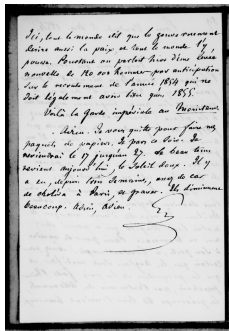 Ici, tout le monde dit que le gouvernement
désire aussi la paix et tout le monde l'y
pousse. Pourtant on parlait hier d'une levée
nouvelle de 140 000 hommes par anticipation
sur le recrutement de l'année 1854 qui ne
doit légalement avoir lieu qu'en 1855.
Voilà la Garde impériale au Moniteur.
Adieu. Je vous quitte pour faire mes
paquets de papiers. Je pars ce soir. Je
reviendrai le 17 jusqu'au 27. Le beau tems
revient aujourd'hui, le soleil doux. Il y
a eu, depuis trois semaines, assez de cas
de choléra à Paris, et graves. Ils diminuent
beaucoup. Adieu, Adieu.